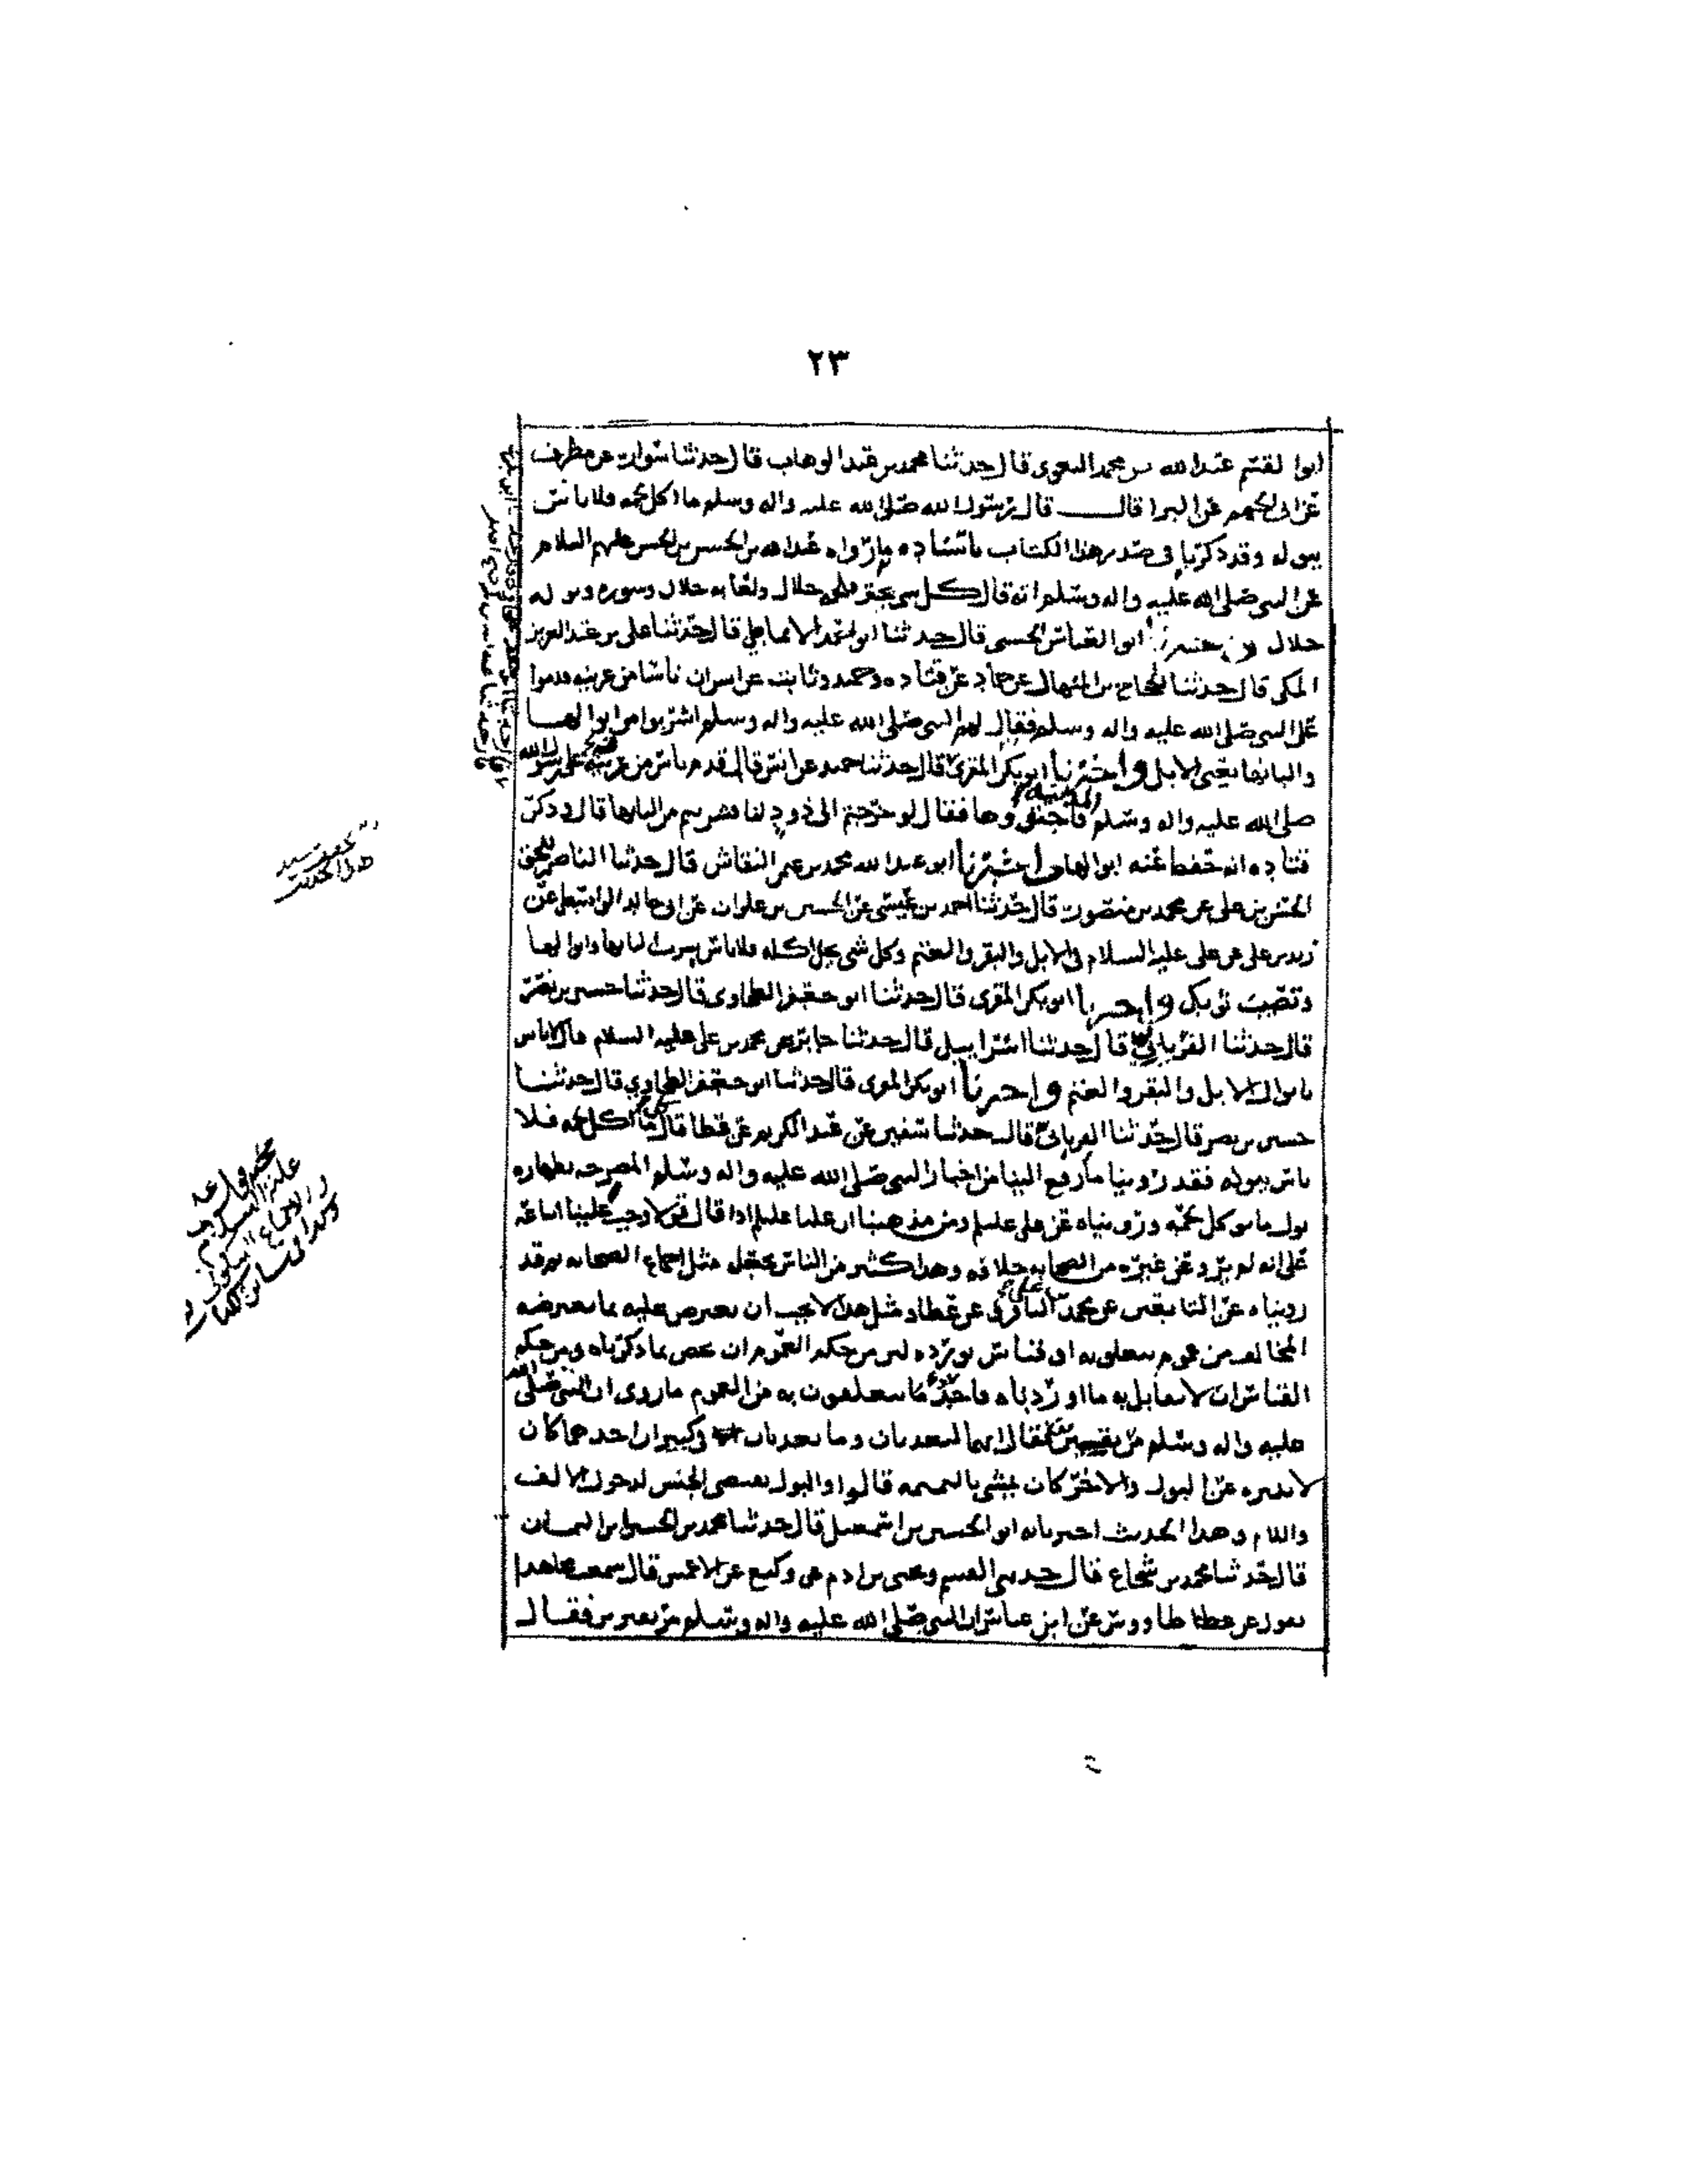 ٢٣
ابوا لقسم عبد الله بن محمد البغوى قال حدثنا محمد بن عبد الوهاب قال حدثنا سوار عن مطرف
عن ابى الجهم عن البرا قال قال رسول الله صلى الله عليه واله وسلم ما اكل لحمه فلا باس
ببوله وقد ذكرنا فى صدر هذا الكتاب باسناده ما رواه عبد الله بن الحسن بن الحسن عليهم السلام
عن النبى صلى الله عليه واله وسلم انه قال كل شى يجتر فلحمه حلال ولعابه حلال وسوره وبوله
حلال ابوا العباس الحسنى قال حدثنا ابو احمد الانماطى قال حدثنا على بن عبد العزيز
المكى قال حدثنا الحجاج بن المنهال عن حماد عن قتاده وحميد وثابت عن انس ان ناسا من عرينه قدموا
على النبى صلى الله عليه واله وسلم فقال لهم النبى صلى الله عليه واله وسلم اشربوا من ابوالها
والبانها يعنى الابل واخبرنا ابو بكر المقرى قال حدثنا حميد عن انس قال قدم ناس من عرينه على رسول الله
صلى الله عليه واله وسلم المدينه فاجتووها فقال لو خرجتم الى ذود لنا فشربتم من البانها قال وذكر
قتاده انه حفظ عنه ابوالها واخبرنا ابو عبد الله محمد بن عمر النقاش قال حدثنا الناصر للحق
الحسن بن على عن محمد بن منصور قال حدثنا احمد بن عيسى عن الحسين بن علوان عن ابى خالد الواسطى عن
زيد بن على عن على عليه السلام فى الابل والبقر والغنم وكل شى يحل اكله فلا باس بشرب البانها وابوالها
وتصيب ثوبك واخبرنا ابو بكر المقرى قال حدثنا ابو جعفر الطحاوى قال حدثنا حسين بن نصر
قال حدثنا الفريابى قال حدثنا اسراييل قال حدثنا جابر عن محمد بن على عليه السلام قال لا باس
بابوال الابل والبقر والغنم واخبرنا ابو بكر المقرى قال حدثنا ابو جعفر الطحاوى قال حدثنا
حسين بن نصر قال حدثنا الفريابى قال حدثنا سفين عن عبد الكريم عن عطا قال كل ما اكل لحمه فلا
باس ببوله فقد روينا ما رفع الينا من اخبار النبى صلى الله عليه واله وسلم المصرحه بطهاره
بول ما يوكل لحمه وروينا ه عن على عليلم ومن مذهبنا ان عليا عليلم اذا قال قولا وجب علينا اتباعه
على انه لم يرو عن غيره من الصحابه خلافه وهذا كثير من الناس يجعله مثل اجماع الصحابه وقد
رويناه عن التابعين عن محمد بن على الباقر وعن عطا ومثل هذا لا يجب ان يعترض عليه بما يعترضه
المخالف من عموم يتعلق به او قياس يورده لان من حكم العموم ان يخص بما ذكرناه ومن حكم
القياس ان لا يقابل به ما اوردناه فاحد ما يتعلقون به من العموم ما روى ان النبى صلى الله
عليه واله وسلم مر بقبرين فقال انهما ليعذبان وما يعذبان فى كبير ان احدهما كان
لا يستنزه عن البول والاخر كان يمشى بالنميمه قالوا والبول يقتضى الجنس لدخول الالف
واللام وهذا الحديث اخبرنا به ابو الحسين بن اسمعيل قال حدثنا محمد بن الحسين بن اليمان
قال حدثنا محمد بن شجاع قال حدثنى القسم ويحيى بن ادم عن وكيع عن الاعمش قال سمعت مجاهدا
يحدث عن طاووس عن ابن عباس ان النبى صلى الله عليه واله وسلم مر بقبرين فقال